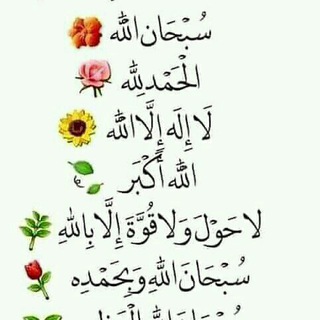 سُبْحَانَ اللّٰه
الْحَمْدُ لِلّٰه
لَا إِلٰهَ إِلَّا اللّٰه
اللّٰهُ أَكْبَر
لَا حَوْلَ وَلَا قُوَّةَ إِلَّا بِاللّٰهِ
سُبْحَانَ اللّٰهِ وَبِحَمْدِهِ